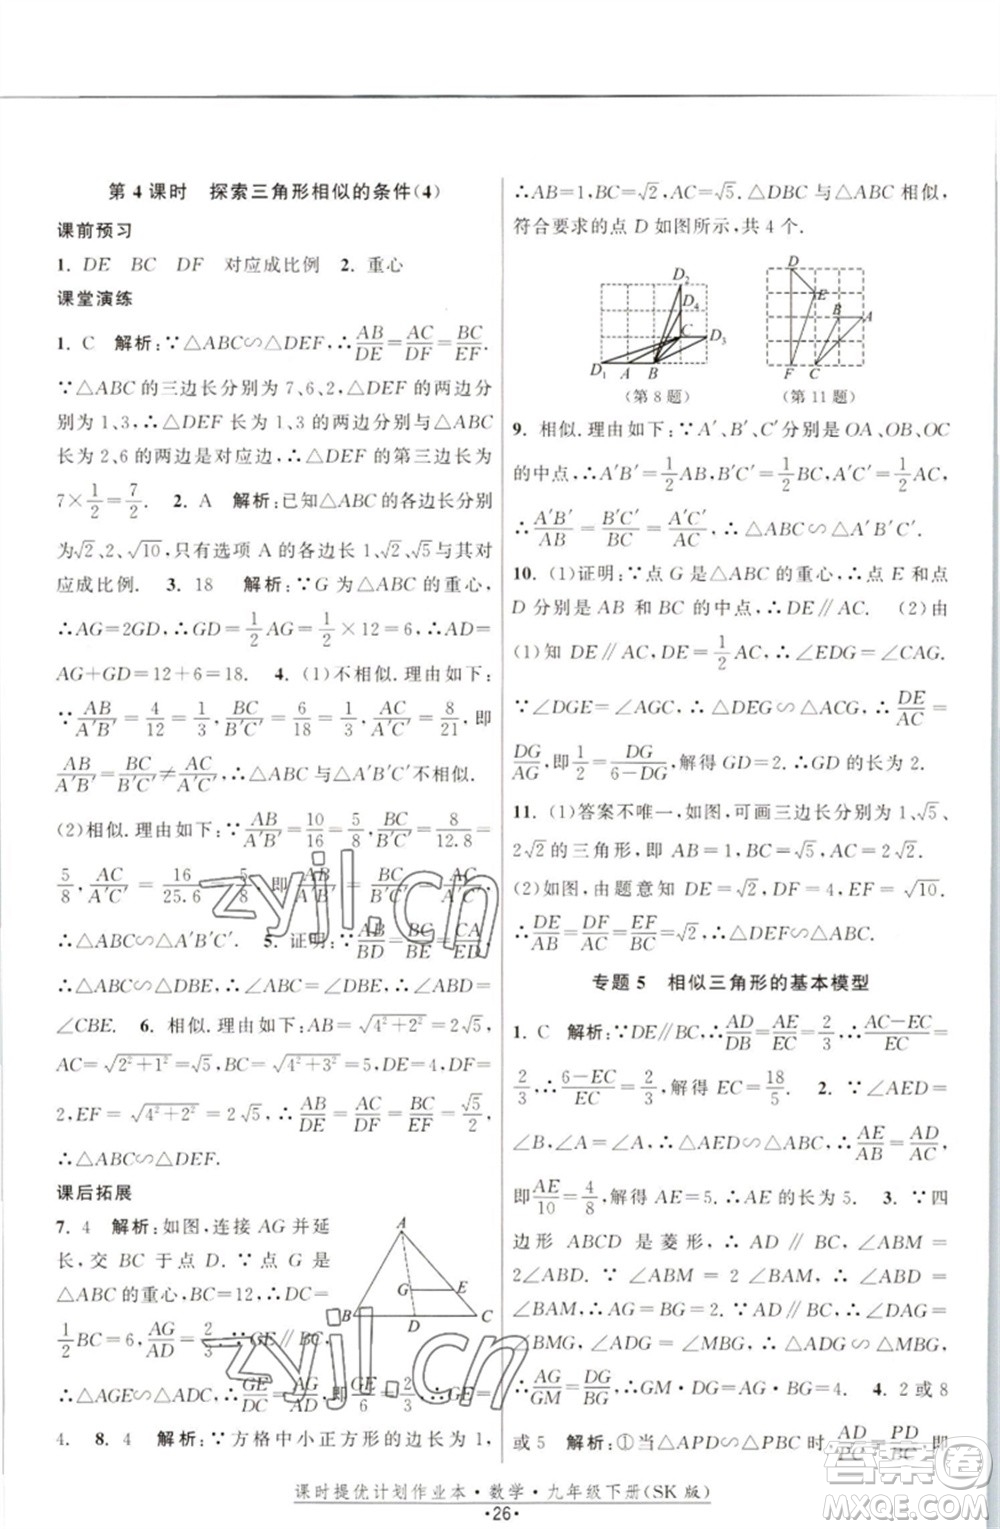 第 4 课时　探索三角形相似的条件(4)
课前预习
1. DE　BC　DF　对应成比例　2. 重心
课堂演练
1. C　解析:∵△ABC∽△DEF,∴AB/DE=AC/DF=BC/EF.
∵△ABC 的三边长分别为 7、6、2,△DEF 的两边分
别为 1、3,∴△DEF 长为 1、3 的两边分别与△ABC
长为 2、6 的两边是对应边,∴△DEF 的第三边长为
7×1/2=7/2.　2. A　解析:已知△ABC 的各边长分别
为√2、2、√10,只有选项 A 的各边长 1、√2、√5与其对
应成比例.　3. 18　解析:∵G 为△ABC 的重心,
∴AG=2GD,∴GD=1/2AG=1/2×12=6,∴AD=
AG+GD=12+6=18.　4. (1)不相似.理由如下:
∵AB/A′B′=4/12=1/3,BC/B′C′=6/18=1/3,AC/A′C′=8/21,即
AB/A′B′=BC/B′C′≠AC/A′C′,∴△ABC 与△A′B′C′不相似.
(2)相似.理由如下:∵AB/A′B′=10/16=5/8,BC/B′C′=8/12.8=
5/8,AC/A′C′=16/25.6=5/8,即AB/A′B′=BC/B′C′=AC/A′C′,
∴△ABC∽△A′B′C′.　5. 证明:∵AB/BD=BC/BE=CA/ED,
∴△ABC∽△DBE,∴∠ABC=∠DBE,∴∠ABD=
∠CBE.　6. 相似.理由如下:AB=√(4²+2²)=2√5,
AC=√(2²+1²)=√5,BC=√(3²+4²)=5,DE=4,DF=
2,EF=√(4²+2²)=2√5,∴AB/DE=AC/DF=BC/EF=√5/2,
∴△ABC∽△DEF.
课后拓展
7. 4　解析:如图,连接 AG 并延
长,交 BC 于点 D.∵G 是
△ABC 的重心,BC=12,∴DC=
1/2BC=6,AG/AD=2/3.∵GE∥BC,
∴△AGE∽△ADC,∴GE/DC=AG/AD,即GE/6=2/3,∴GE=
4.　8. 4　解析:∵方格中小正方形的边长为 1,
A
G
E
B
D
C
∴AB=1,BC=√2,AC=√5.∵△DBC 与△ABC 相似,
符合要求的点 D 如图所示,共 4 个.
D₂
D₄
C
D₃
D₁
A
B
(第 8 题)
D
E
B
A
F
C
(第 11 题)
9. 相似.理由如下:∵A′、B′、C′分别是 OA、OB、OC
的中点,∴A′B′=1/2AB,B′C′=1/2BC,A′C′=1/2AC,
∴A′B′/AB=B′C′/BC=A′C′/AC,∴△ABC∽△A′B′C′.
10. (1)证明:∵点 G 是△ABC 的重心,∴点 E 和点
D 分别是 AB 和 BC 的中点,∴DE∥AC.　(2)由
(1)知 DE∥AC,DE=1/2AC,∴∠EDG=∠GAC.
∵∠DGE=∠AGC,∴△DGE∽△AGC,∴DE/AC=
DG/AG,即1/2=DG/(6−DG),解得 GD=2.∴GD 的长为 2.
11. (1)答案不唯一,如图,可画三边长分别为 1、√5、
2√2的三角形,即 AB=1,BC=√5,AC=2√2.
(2)如图,由题意知 DE=√2,DF=4,EF=√10.
∴DE/AB=DF/AC=EF/BC=√2,∴△DEF∽△ABC.
专题 5　相似三角形的基本模型
1. C　解析:∵DE∥BC,∴AD/DB=AE/EC=2/3,∴(AC−EC)/EC=
2/3,∴(6−EC)/EC=2/3,解得 EC=18/5.　2. ∵∠AED=
∠B,∠A=∠A,∴△AED∽△ABC,∴AE/AB=AD/AC,
即AE/10=4/8,解得 AE=5.∴AE 的长为 5.　3. ∵四
边形 ABCD 是菱形,∴AD∥BC,∠ABM=
2∠ABD.∵∠ABM=2∠BAM,∴∠ABD=
∠BAM.∵AD∥BC,∴∠DAG=
∠BMG,∠ADG=∠MBG,∴△ADG∽△MBG,
∴AG/GM=DG/BG,∴GM·DG=AG·BG.　4. 2 或 8
或 5　解析:①当△APD∽△PBC 时,AD/PC=PD/BC,即
课时提优计划作业本·数学·九年级下册(SK 版)
·26·
zyjl.cn
zyjl.cn
答案圈
MXQE.COM